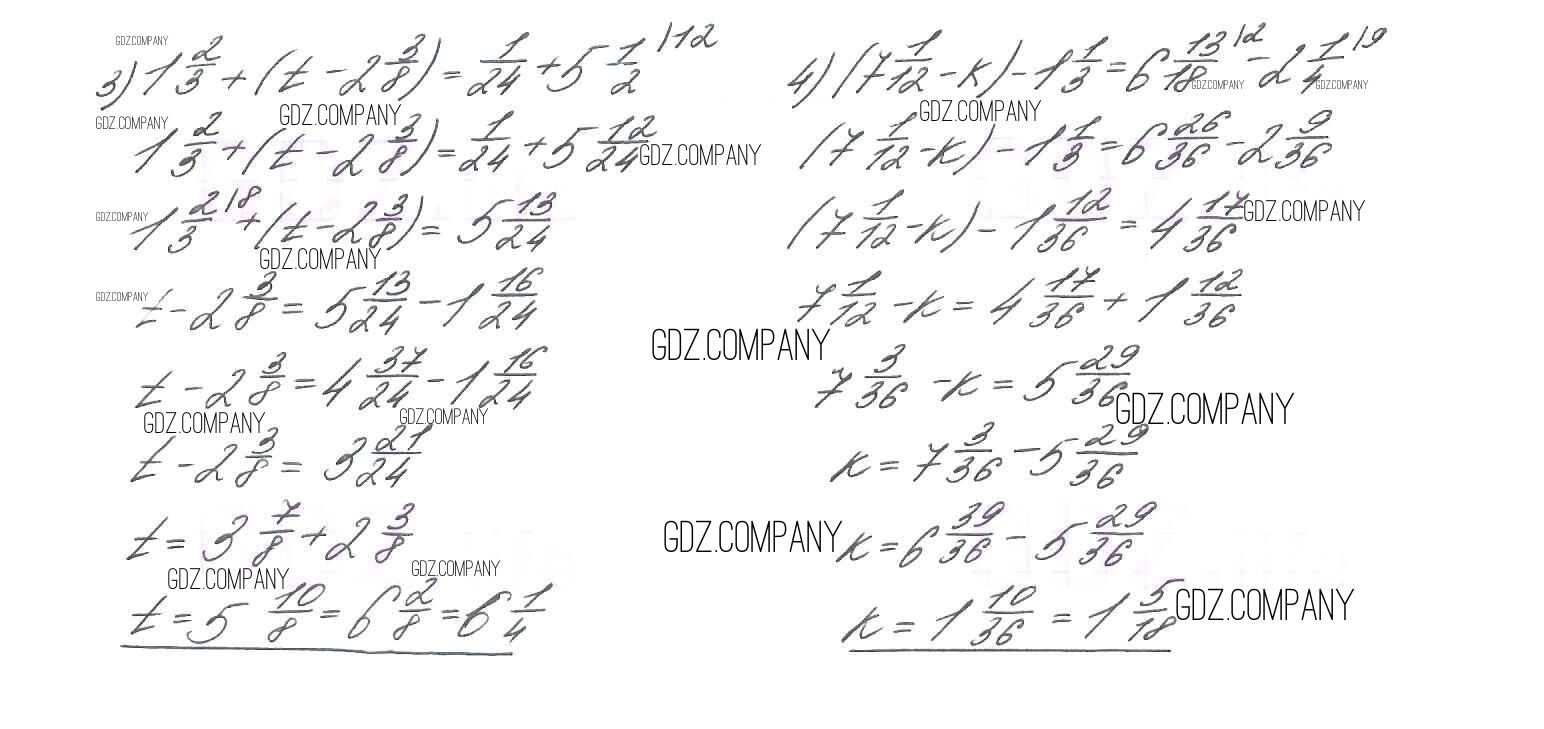 GDZ.COMPANY
3) 1 2/3 + (t - 2 3/8) = 1/24 + 5 1/2 |12
GDZ.COMPANY GDZ.COMPANY
1 2/3 + (t - 2 3/8) = 1/24 + 5 12/24 GDZ.COMPANY
GDZ.COMPANY 1 2/3 |8 + (t - 2 3/8) = 5 13/24
GDZ.COMPANY
GDZ.COMPANY t - 2 3/8 = 5 13/24 - 1 16/24
t - 2 3/8 = 4 37/24 - 1 16/24
GDZ.COMPANY GDZ.COMPANY
t - 2 3/8 = 3 21/24
t = 3 7/8 + 2 3/8
GDZ.COMPANY GDZ.COMPANY
t = 5 10/8 = 6 2/8 = 6 1/4
4) (7 1/12 - k) - 1 1/3 = 6 13/18 |2 - 2 1/4 |9
GDZ.COMPANY GDZ.COMPANY
GDZ.COMPANY
(7 1/12 - k) - 1 1/3 = 6 26/36 - 2 9/36
(7 1/12 - k) - 1 12/36 = 4 17/36 GDZ.COMPANY
7 1/12 - k = 4 17/36 + 1 12/36
GDZ.COMPANY
7 3/36 - k = 5 29/36 GDZ.COMPANY
k = 7 3/36 - 5 29/36
GDZ.COMPANY k = 6 39/36 - 5 29/36
k = 1 10/36 = 1 5/18 GDZ.COMPANY